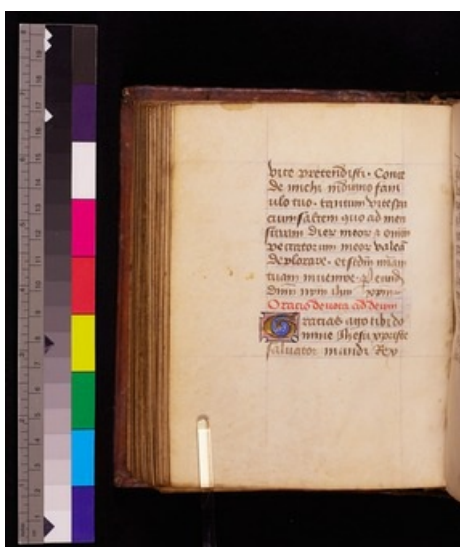 vite pretendisti. Conce
de michi indigno fam
ulo tuo. tantum vite spa
cium saltem quo ad men
suram dier meor a omnium
peccatorum meor valeã
deplorare. et scdm mĩam
tuam invenire. P eundẽ
dñm nrm ihm xpm.
Oratio devota ad deum
Gratias ago tibi do
mine Ihesu xpriste
salvator mundi Rex